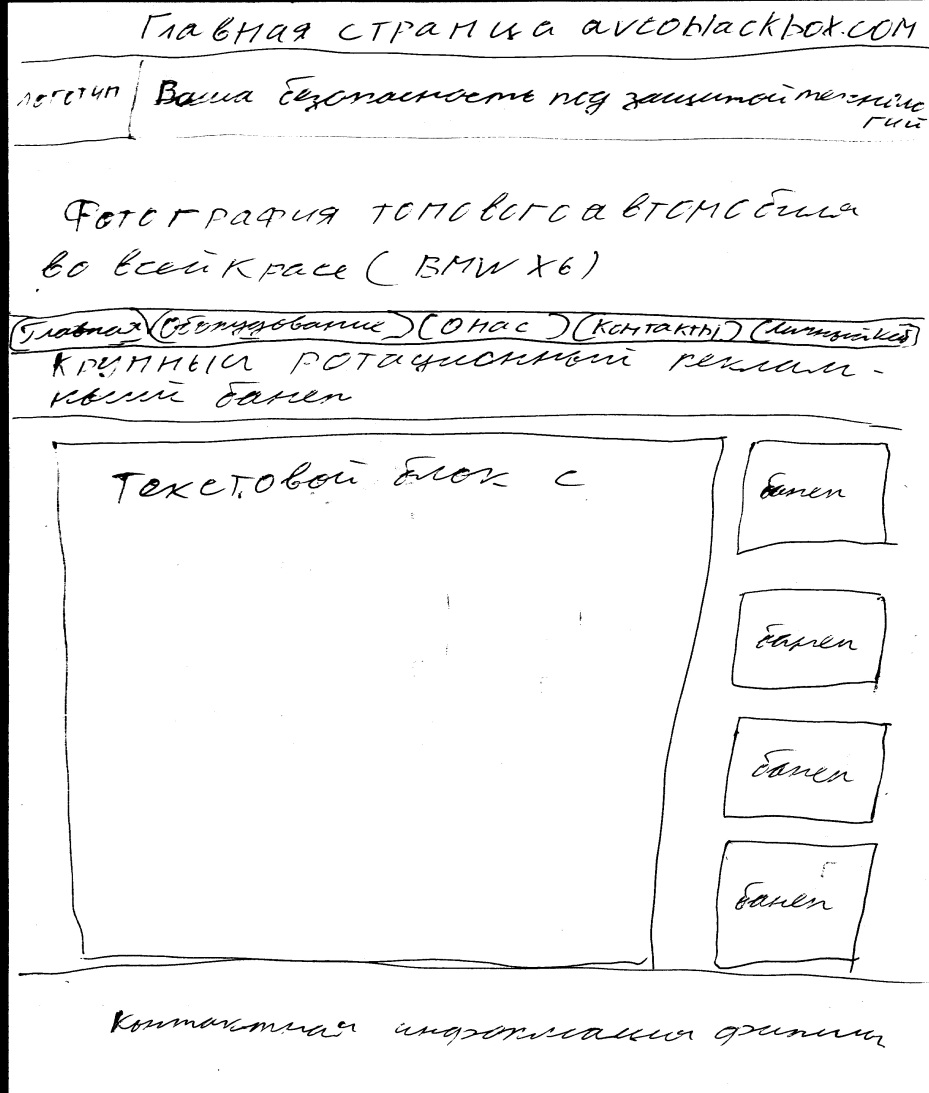 Главная страница avtoblackbox.com
логотип
Ваша безопасность под защитой техноло
гий
Фотография топового автомобиля
во всей красе (BMW X6)
Главная Оборудование О нас Контакты Личный каб
Крупный ротационный реклам-
ный банер
Текстовой блок с
банер
банер
банер
банер
Контактная информация фирмы